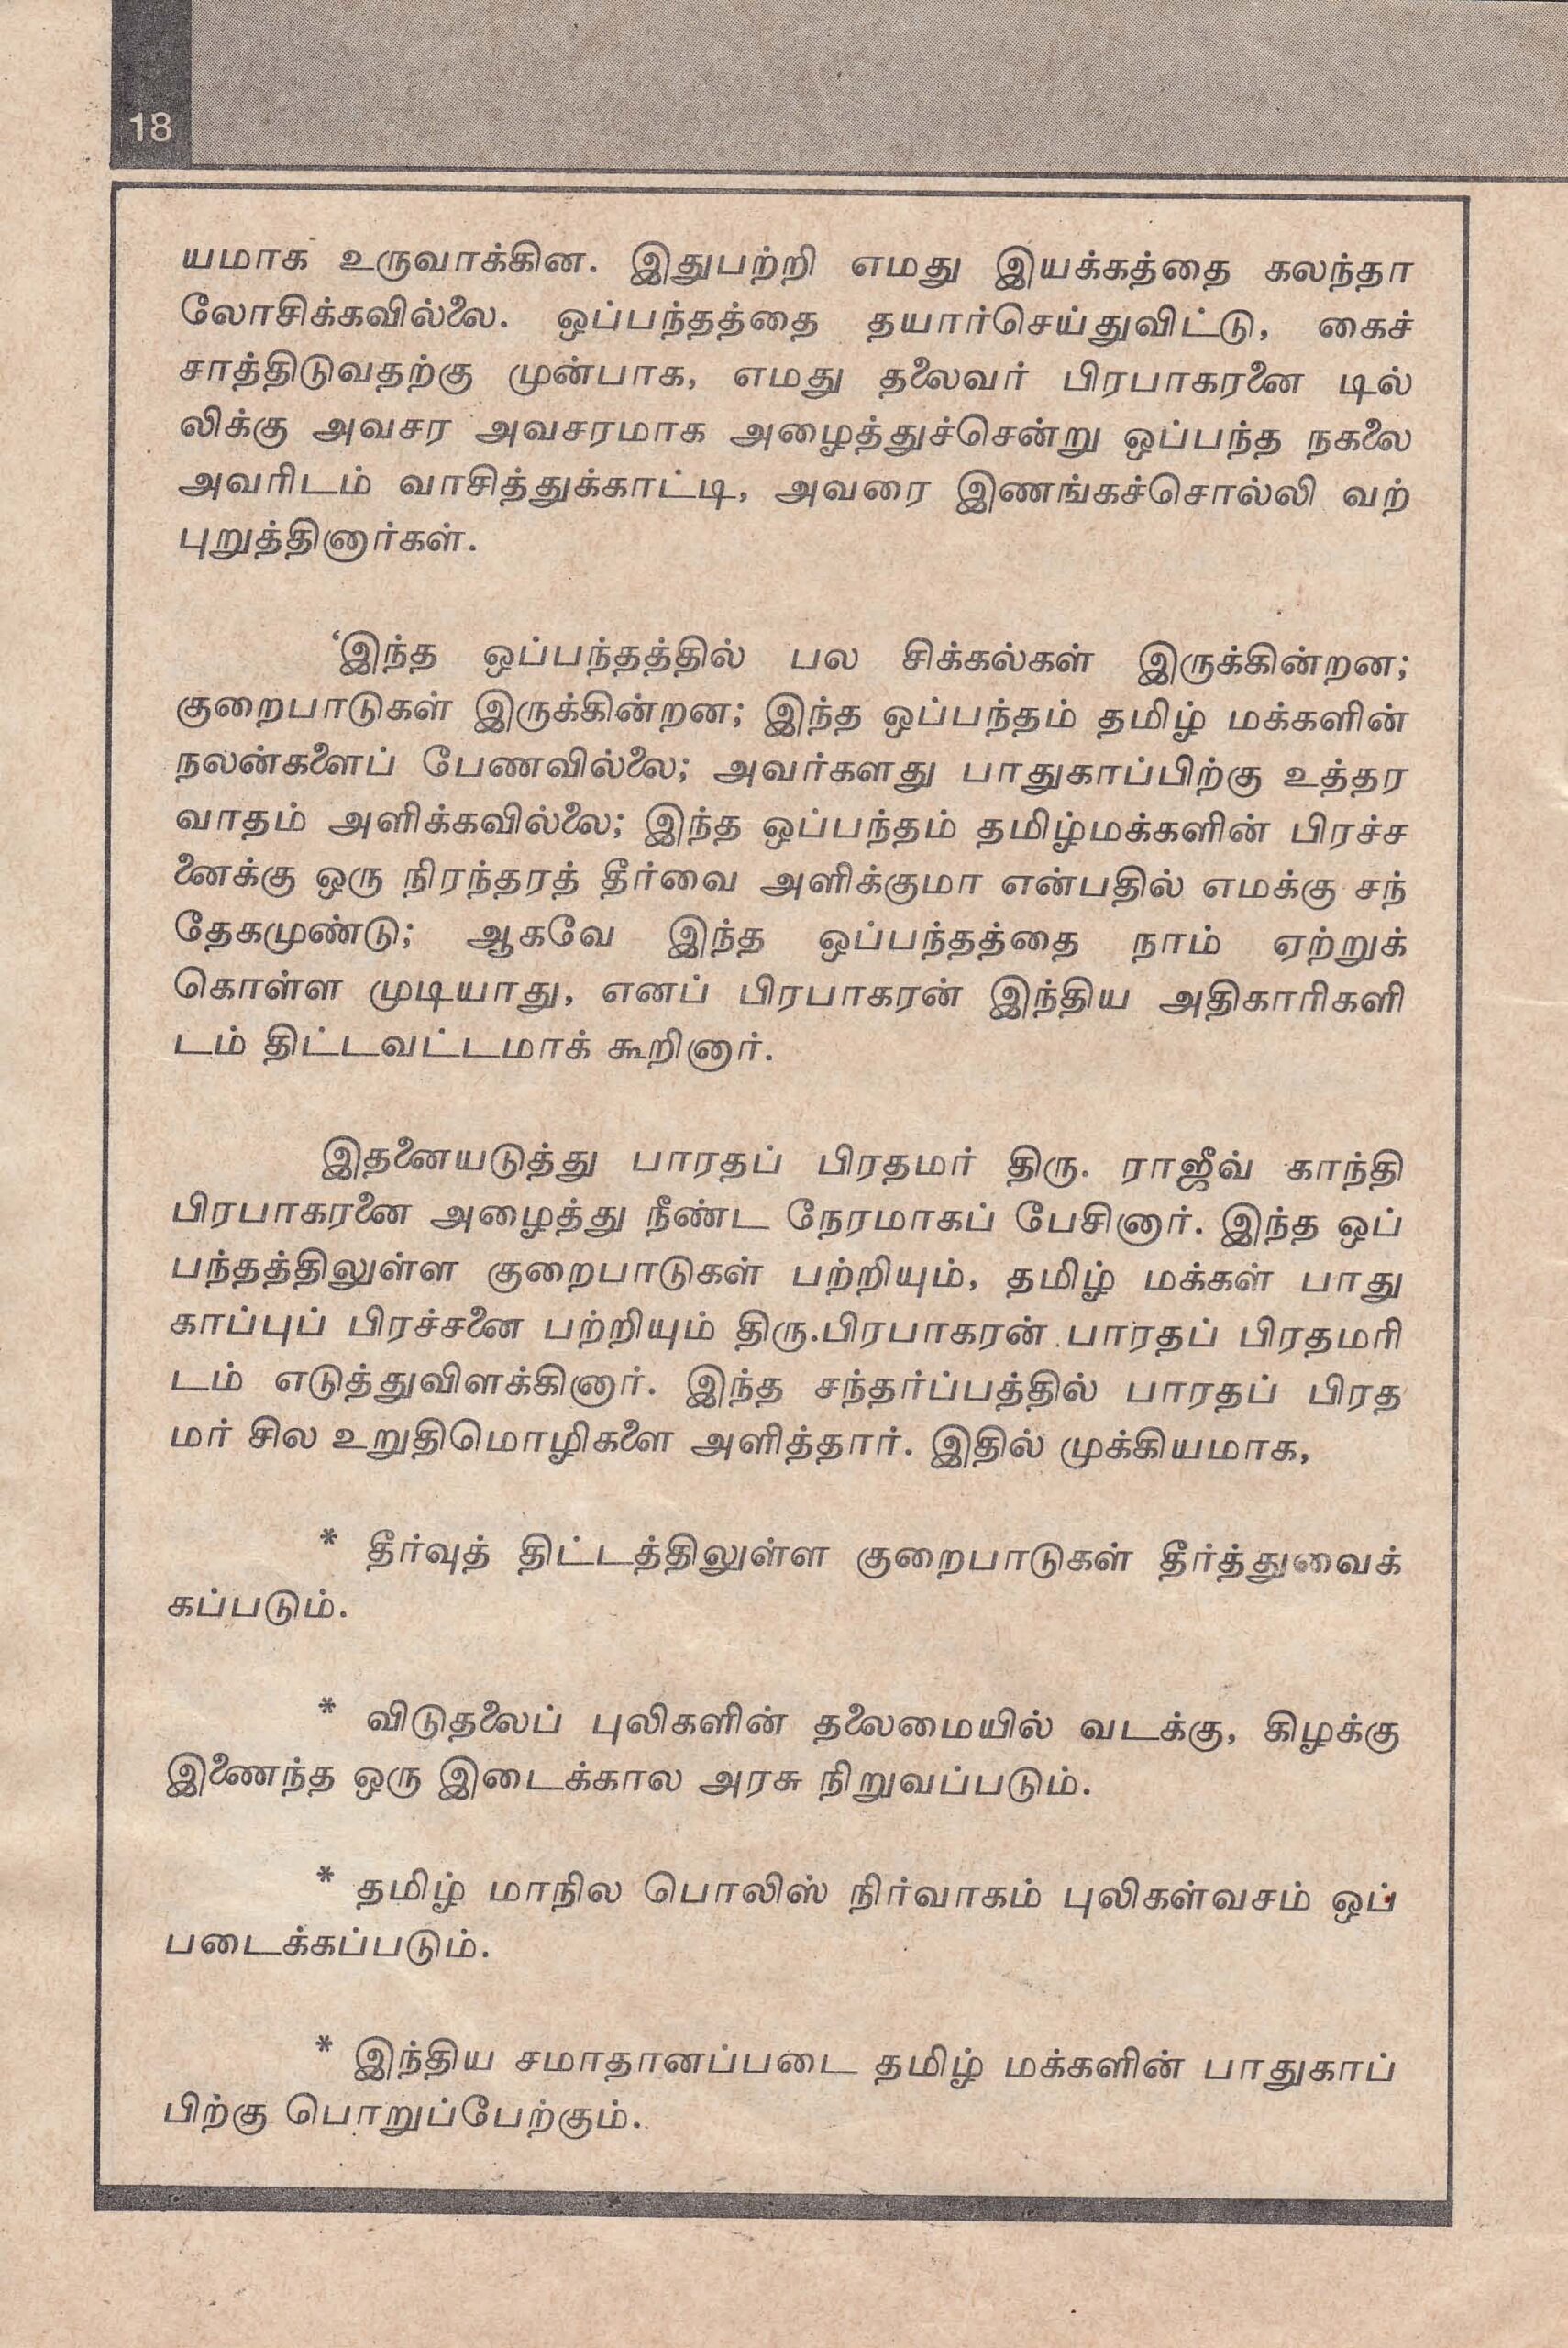 18
யமாக உருவாக்கின. இதுபற்றி எமது இயக்கத்தை கலந்தா
லோசிக்கவில்லை. ஒப்பந்தத்தை தயார்செய்துவிட்டு, கைச்
சாத்திடுவதற்கு முன்பாக, எமது தலைவர் பிரபாகரனை டில்
லிக்கு அவசர அவசரமாக அழைத்துச்சென்று ஒப்பந்த நகலை
அவரிடம் வாசித்துக்காட்டி, அவரை இணங்கச்சொல்லி வற்
புறுத்தினார்கள்.
‘இந்த ஒப்பந்தத்தில் பல சிக்கல்கள் இருக்கின்றன;
குறைபாடுகள் இருக்கின்றன; இந்த ஒப்பந்தம் தமிழ் மக்களின்
நலன்களைப் பேணவில்லை; அவர்களது பாதுகாப்பிற்கு உத்தர
வாதம் அளிக்கவில்லை; இந்த ஒப்பந்தம் தமிழ்மக்களின் பிரச்ச
னைக்கு ஒரு நிரந்தரத் தீர்வை அளிக்குமா என்பதில் எமக்கு சந்
தேகமுண்டு; ஆகவே இந்த ஒப்பந்தத்தை நாம் ஏற்றுக்
கொள்ள முடியாது, எனப் பிரபாகரன் இந்திய அதிகாரிகளி
டம் திட்டவட்டமாக் கூறினார்.
இதனையடுத்து பாரதப் பிரதமர் திரு. ராஜீவ் காந்தி
பிரபாகரனை அழைத்து நீண்ட நேரமாகப் பேசினார். இந்த ஒப்
பந்தத்திலுள்ள குறைபாடுகள் பற்றியும், தமிழ் மக்கள் பாது
காப்புப் பிரச்சனை பற்றியும் திரு.பிரபாகரன் பாரதப் பிரதமரி
டம் எடுத்துவிளக்கினார். இந்த சந்தர்ப்பத்தில் பாரதப் பிரத
மர் சில உறுதிமொழிகளை அளித்தார். இதில் முக்கியமாக,
* தீர்வுத் திட்டத்திலுள்ள குறைபாடுகள் தீர்த்துவைக்
கப்படும்.
* விடுதலைப் புலிகளின் தலைமையில் வடக்கு, கிழக்கு
இணைந்த ஒரு இடைக்கால அரசு நிறுவப்படும்.
* தமிழ் மாநில பொலிஸ் நிர்வாகம் புலிகள்வசம் ஒப்
படைக்கப்படும்.
* இந்திய சமாதானப்படை தமிழ் மக்களின் பாதுகாப்
பிற்கு பொறுப்பேற்கும்.